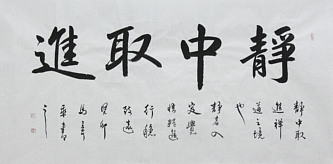 靜中取進
靜中取
進禪
道之境
也
靜者入
定覺
悟精進
行穩
致遠
癸卯